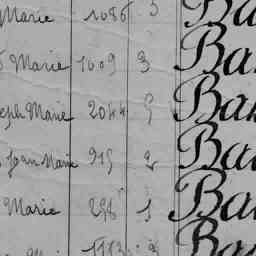 Marie 1086 5 Ba
Marie 1609 3 Ba
eph Marie 2044 5 Bak
Jean Marie 915 2 Ba
Marie 298 1 Bak
1113 Ba